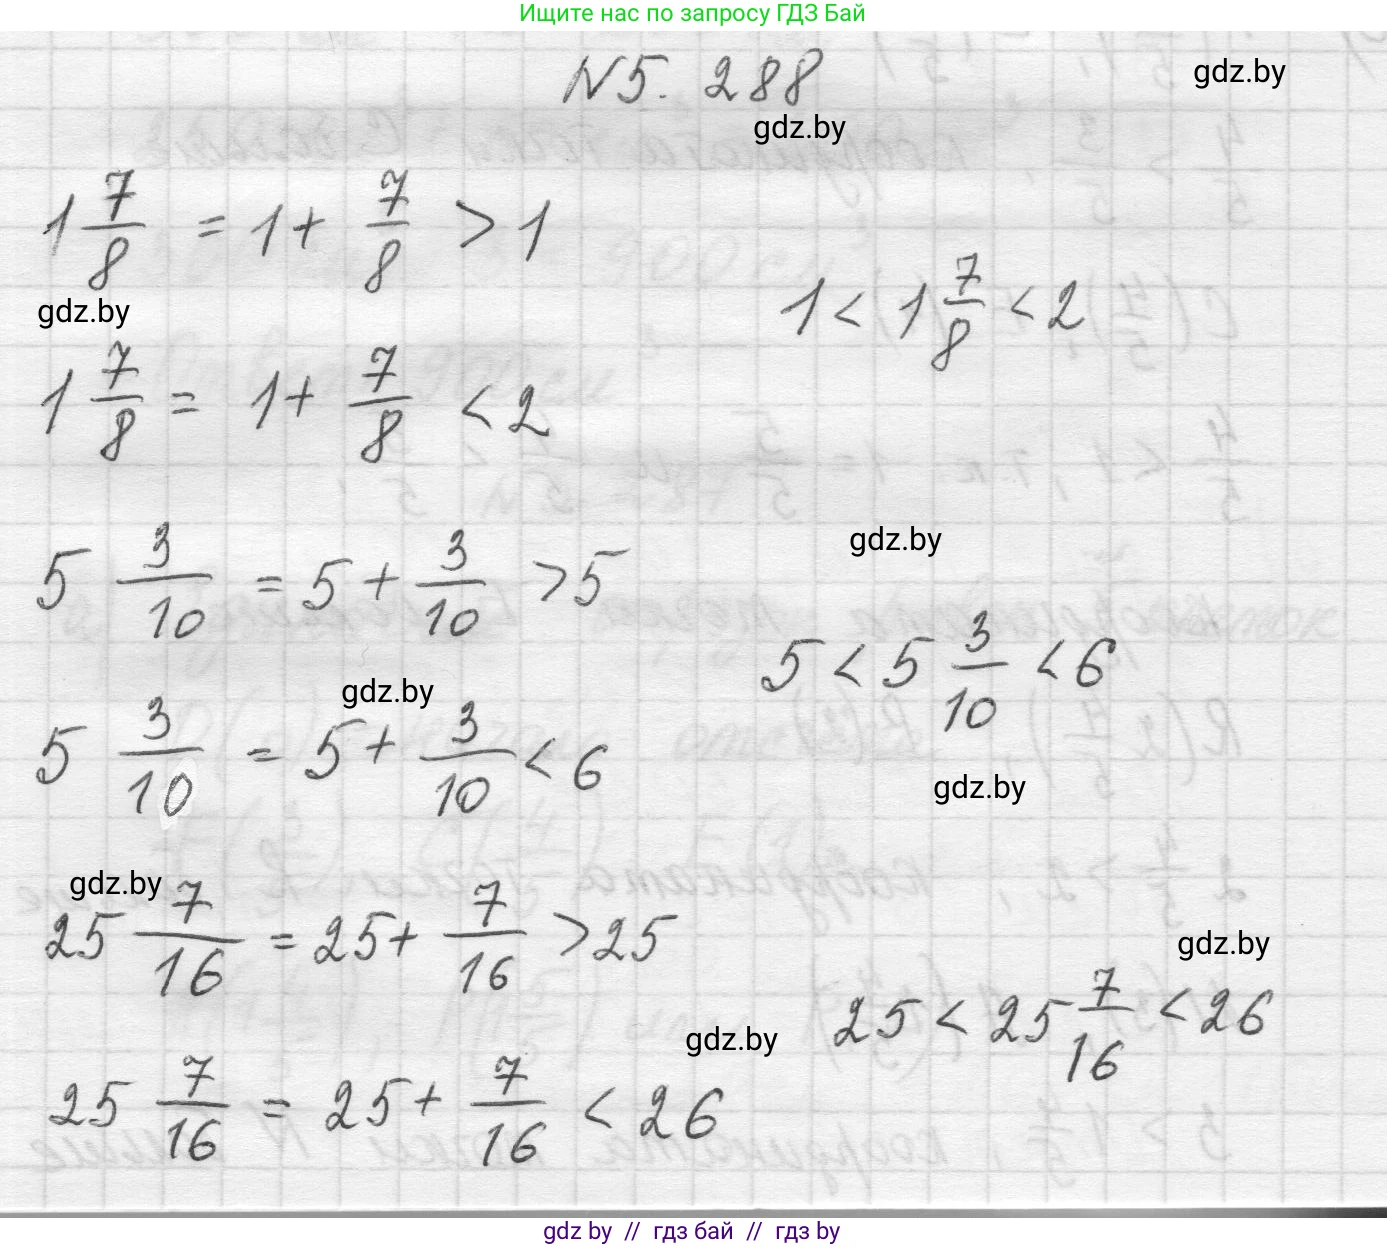 Ищите нас по запросу ГДЗ Бай
N5. 288
gdz.by
gdz.by
1 7/8 = 1 + 7/8 > 1
1 < 1 7/8 < 2
gdz.by
1 7/8 = 1 + 7/8 < 2
gdz.by
5 3/10 = 5 + 3/10 > 5
5 < 5 3/10 < 6
gdz.by
5 3/10 = 5 + 3/10 < 6
gdz.by
gdz.by
25 7/16 = 25 + 7/16 > 25
gdz.by
25 < 25 7/16 < 26
gdz.by
25 7/16 = 25 + 7/16 < 26
gdz by // гдз бай // гдз by